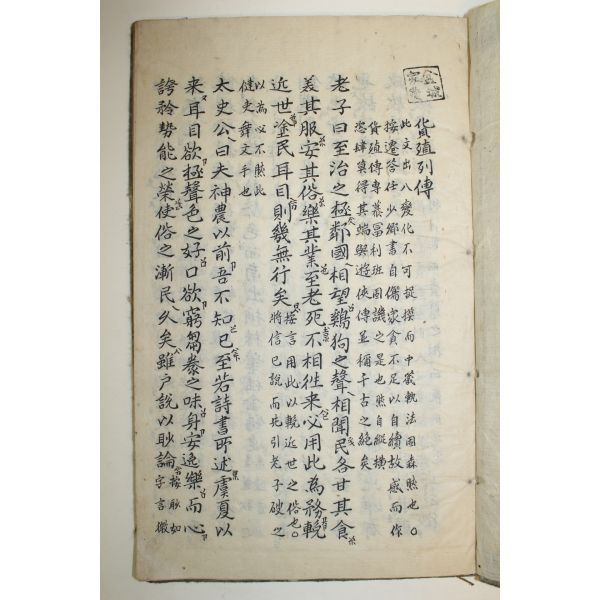 貨殖列傳
此文出入變化不可捉摸而中藏軌法固森然也〇
按遷答任少卿書自傷家貧不足以自贖故感而作
貨殖傳專慕冨利班固譏之是也然自縱橫
恣肆莫得其端與遊俠傳並稱千古之絶矣
老子曰至治之極鄰國相望鷄狗之聲相聞民各甘其食
美其服安其俗樂其業至老死不相徃來必用此為務輓
近世塗民耳目則幾無行矣按言用此以輓近世之俗也〇
將信己說而先引老子破之
以為必不然此
健吏舞文手也
太史公曰夫神農以前吾不知已至若詩書所述虞夏以
来耳目欲極聲色之好口欲窮芻豢之味身安逸樂而心
誇矜勢能之榮使俗之漸民久矣雖户說以眇論按眇如
字言微